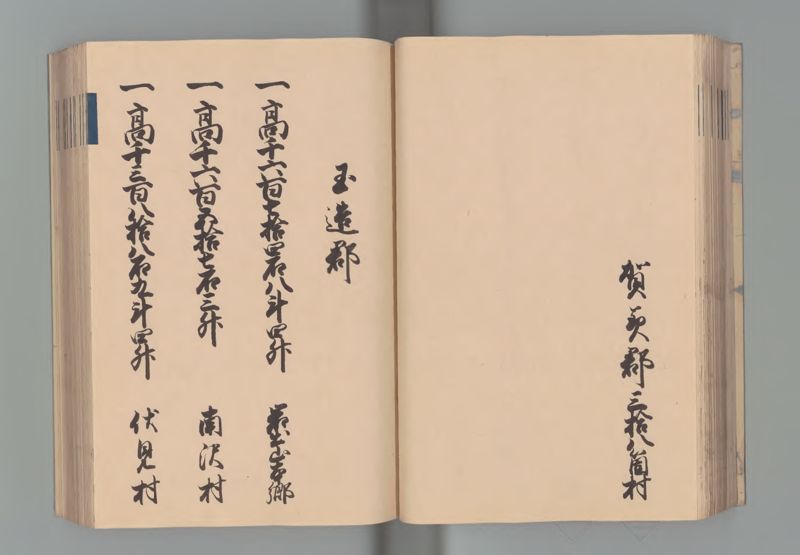 賀美郡三拾八箇村
玉造郡
一高千六百七拾四石八斗四升 岩出山本郷
一高千六百五拾七石三升 南沢村
一高千三百八拾八石九斗四升 伏見村